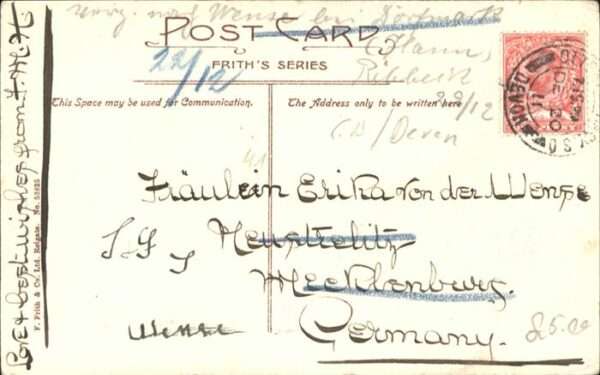 nach Wense bei Dortmark
POST CARD
(Hann,
FRITH'S SERIES
22/12
22/12
This Space may be used for Communication.
The Address only to be written here
CD/Devon
DEVON
DE 11
Fräulein Erika von der Wense
Neustrelitz
Mecklenburg.
Wense
Germany.
25.00
Love & best wishes from F.M.H.
F. Frith & Co. Ltd. Reigate. No.